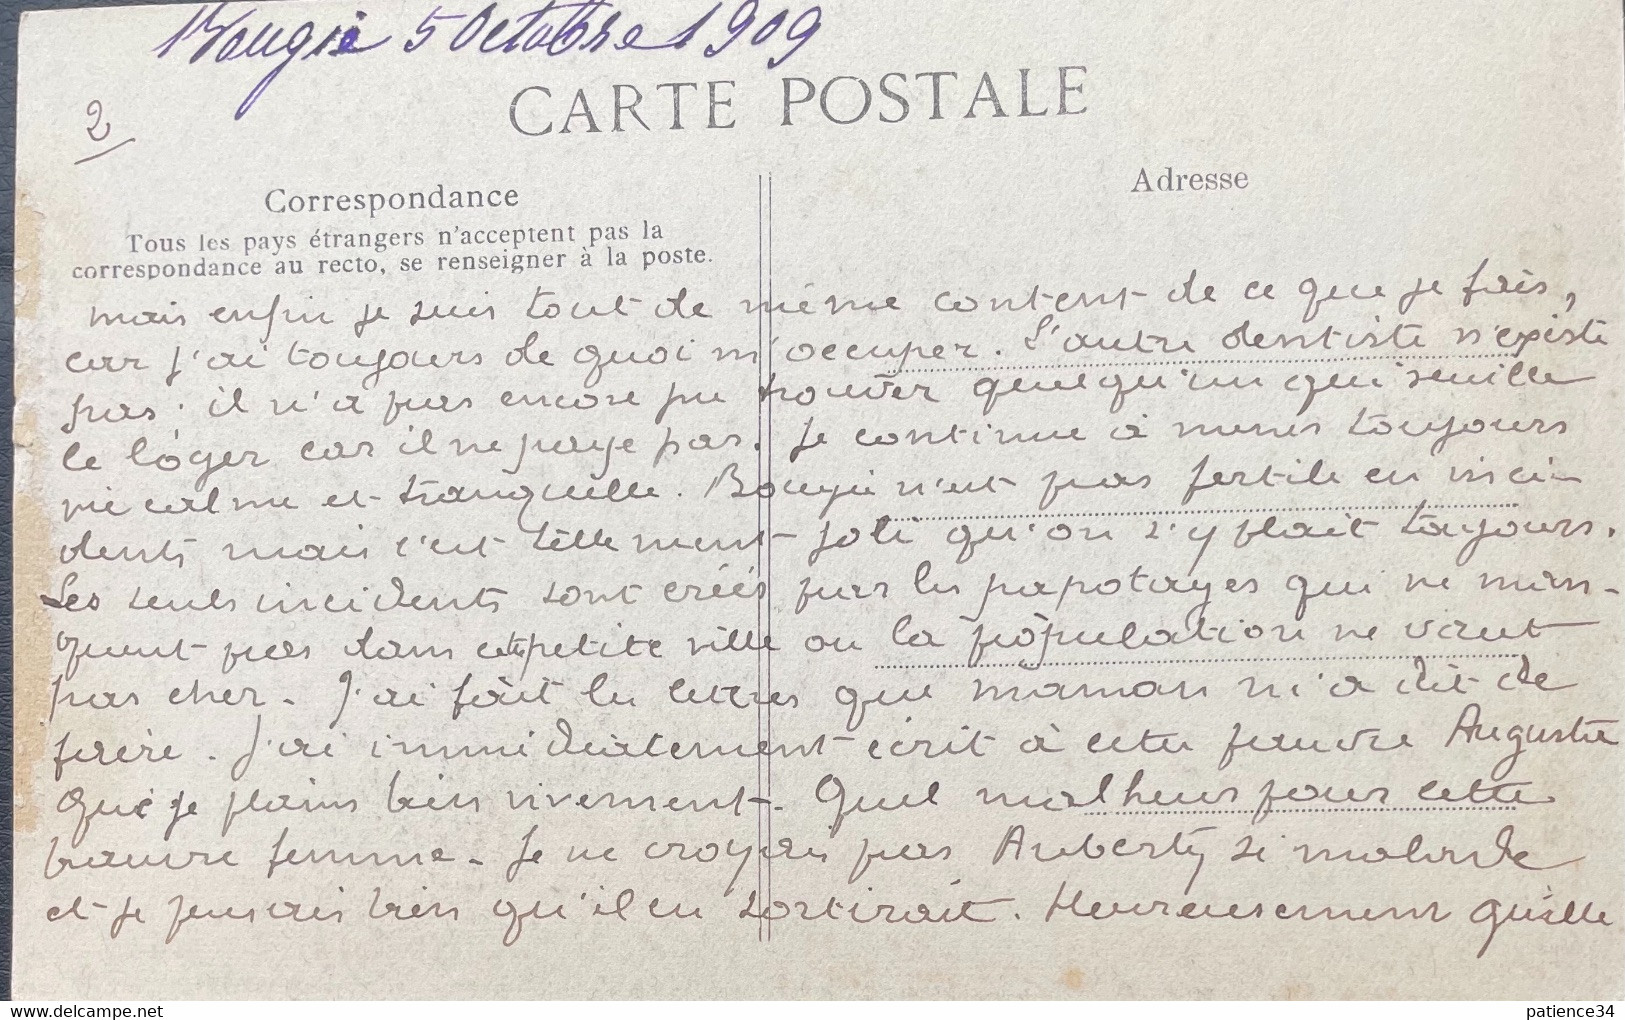 Bougie 5 Octobre 1909
2
CARTE POSTALE
Correspondance
Adresse
Tous les pays étrangers n'acceptent pas la
correspondance au recto, se renseigner à la poste.
mais enfin je suis tout de même content de ce que je fais,
car j'ai toujours de quoi m'occuper. L'autre dentiste n'existe
pas. il n'a pas encore pu trouver quelqu'un qui veuille
le loger car il ne paye pas. Je continue à mener toujours
vie calme et tranquille. Bougie n'est pas fertile en inci-
dents mais c'est tellement joli qu'on s'y plait toujours.
Les seuls incidents sont créés par les papotages qui ne man-
quent pas dans cette petite ville ou la population ne vaut
pas cher. J'ai fait les lettres que maman m'a dit de
faire. J'ai immédiatement écrit à cette pauvre Augusta
que je plains bien vivement. Quel malheur pour cette
pauvre femme. Je ne croyais pas Auberty si malade
et je pensais bien qu'il en sortirait. Heureusement qu'elle
patience34